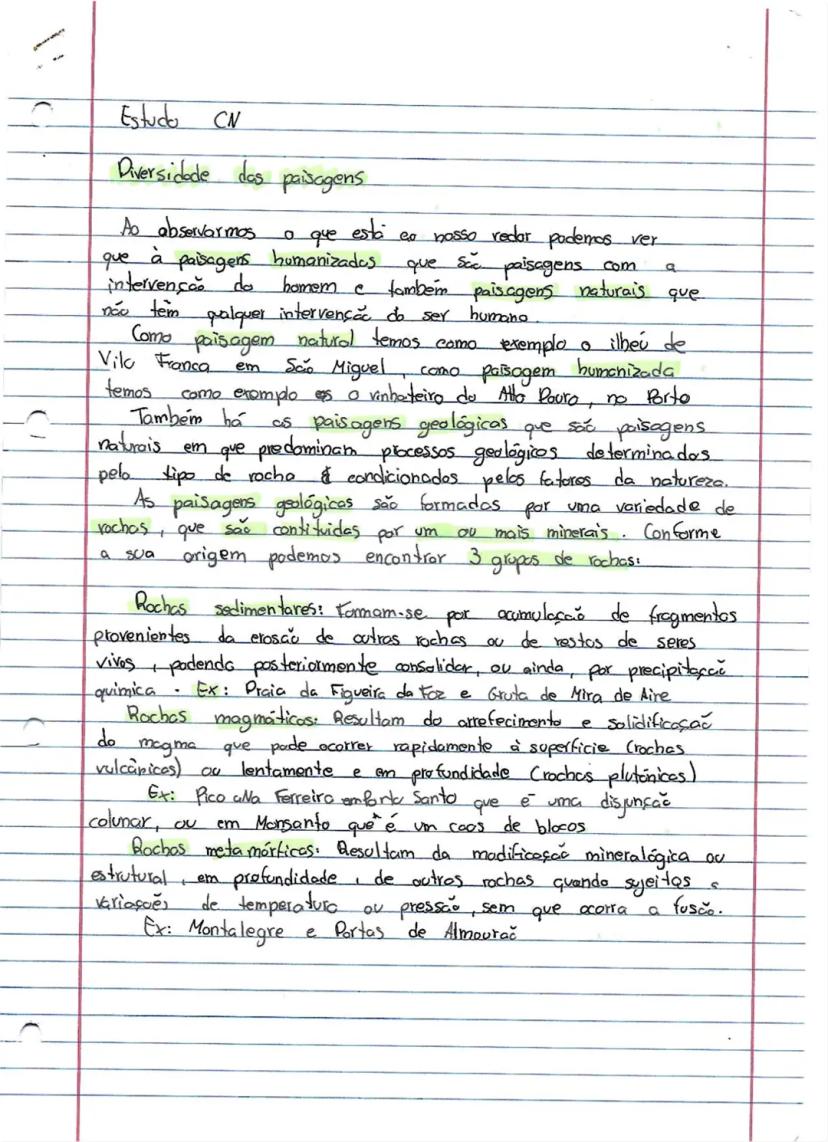 Estudo CN
Diversidade das paisagens
Ao observarmos o que está ao nosso redor podemos ver
que à paisagens humanizadas que são paisagens com a
intervenção do homem e também paisagens naturais que
não têm qualquer intervenção do ser humano.
Como paisagem natural temos como exemplo o ilheú de
Vila Franca em São Miguel, como paisagem humanizada
temos como exemplo o vinhateiro do Alto Douro, no Porto
Também há as paisagens geológicas que são paisagens
naturais em que predominam processos geológicos determinados
pelo tipo de rocha e condicionados pelos fatores da natureza.
As paisagens geológicas são formadas por uma variedade de
rochas, que são contituidas por um ou mais minerais. Conforme
a sua origem podemos encontrar 3 grupos de rochas:
Rochas sedimentares: Formam-se por acumulação de fragmentos
provenientes da erosão de outras rochas ou de restos de seres
vivos, podendo posteriormente consolidar, ou ainda, por precipitação
química. Ex: Praia da Figueira da Foz e Gruta de Mira de Aire
Rochas magmáticas: Resultam do arrefecimento e solidificação
do magma que pode ocorrer rapidamente à superfície (rochas
vulcânicas) ou lentamente e em profundidade (rochas plutónicas)
Ex: Pico Ana Ferreira em Porto Santo que é uma disjunção
colunar, ou em Monsanto que é um caos de blocos
Rochas metamórficas: Resultam da modificação mineralógica ou
estrutural, em profundidade, de outras rochas quando sujeitas a
variações de temperatura ou pressão, sem que ocorra a fusão.
Ex: Montalegre e Portas de Almourão